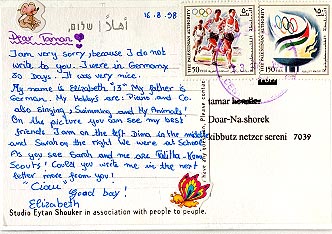 16.8.98
أهلاً | שלום
Dear Tamar
I am very sorry, because I do not
write to you. I were in Germany
30 Days. It was very nice.
My name is Elizabeth "13" My father is
German. My Hobbys are: Piano and Co.
also singing, Swimming and My Animals!
On the picture you can see my best
friends. I am on the left Dima in the middle
and Sarah on the right We were at School.
As you see Sarah and me are
Scouts! Could you write me in the next
letter more from you!
"Ciao"
Good bay!
Elizabeth
Studio Eytan Shouker in association with people to people.
THE PALESTINIAN AUTHORITY
THE PALESTINIAN AUTHORITY
amar
Doar-Na.shorek
kibbutz netzer sereni 7039